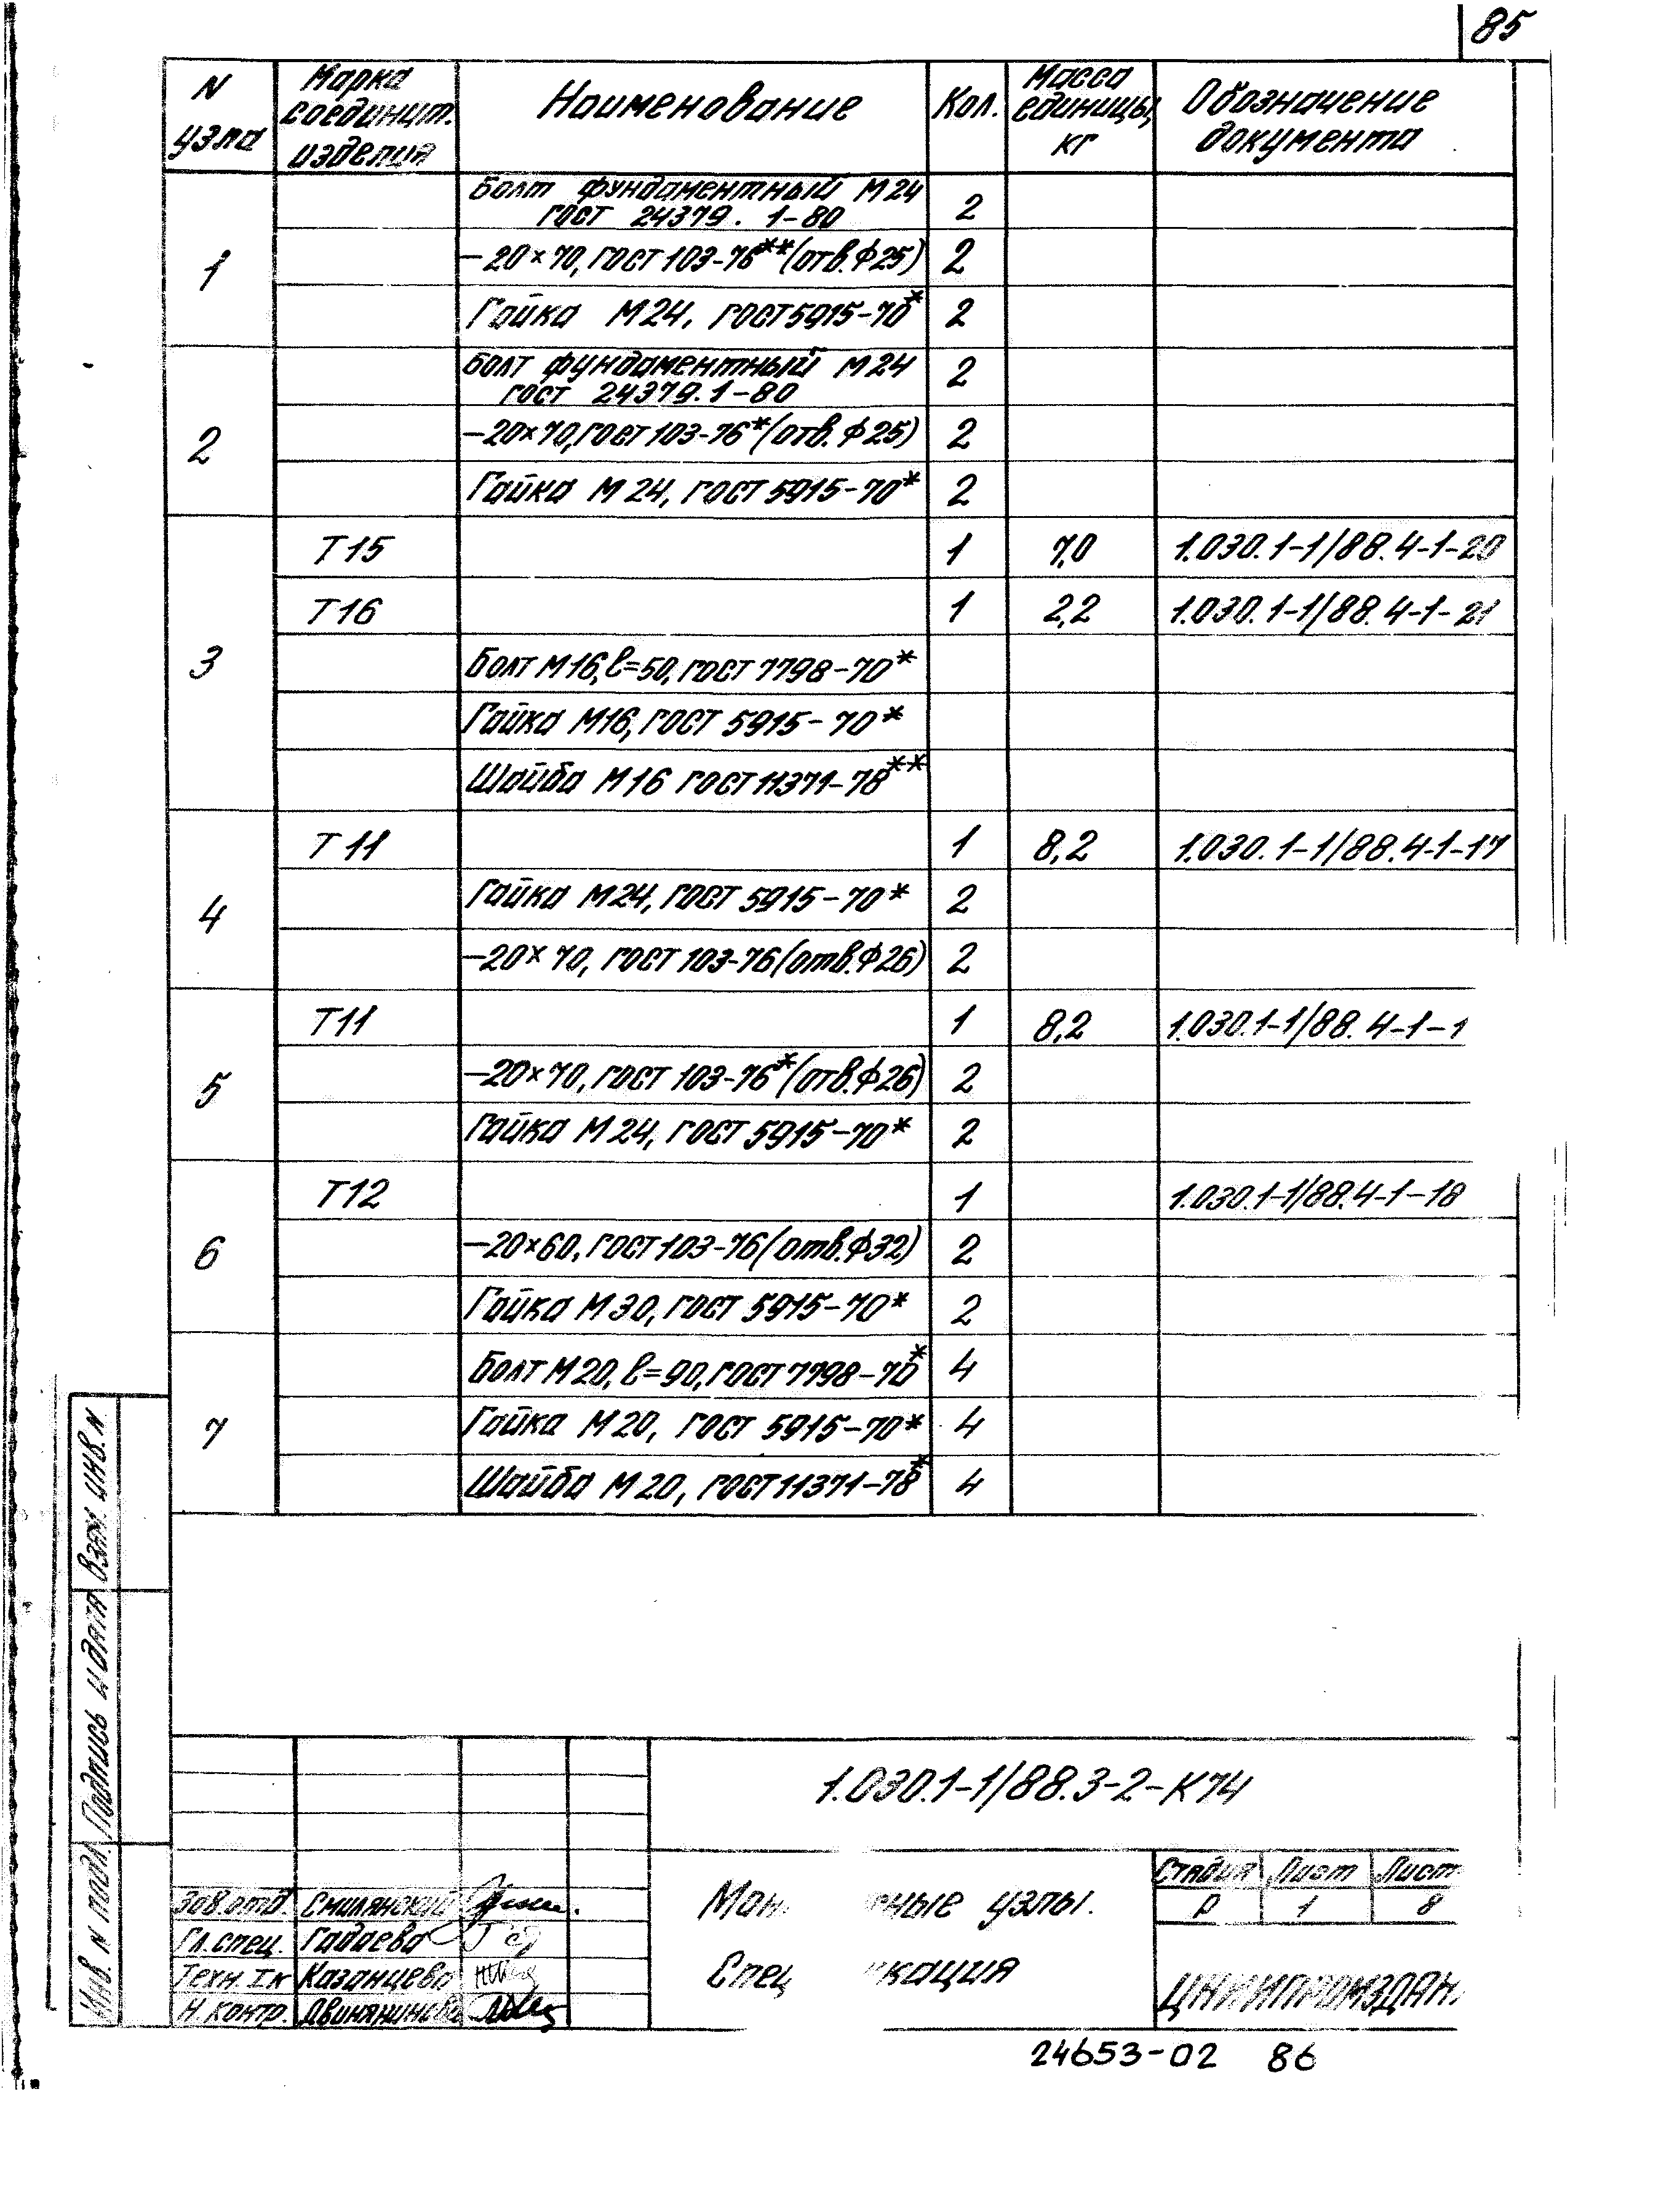 85
N узла Марка соединит. изделия Наименование Кол. Масса единицы, кг Обозначение документа
1 Болт фундаментный М24 ГОСТ 24379.1-80 2
-20×70, ГОСТ 103-76** (отв.ф25) 2
Гайка М24, ГОСТ 5915-70* 2
2 Болт фундаментный М24 ГОСТ 24379.1-80 2
-20×70, ГОСТ 103-76* (отв.ф25) 2
Гайка М24, ГОСТ 5915-70* 2
3 Т15 1 7,0 1.030.1-1/88.4-1-20
Т16 1 2,2 1.030.1-1/88.4-1-21
Болт М16, ℓ=50, ГОСТ 7798-70*
Гайка М16, ГОСТ 5915-70*
Шайба М16 ГОСТ 11371-78**
4 Т11 1 8,2 1.030.1-1/88.4-1-17
Гайка М24, ГОСТ 5915-70* 2
-20×70, ГОСТ 103-76 (отв.ф26) 2
5 Т11 1 8,2 1.030.1-1/88.4-1-1
-20×70, ГОСТ 103-76* (отв.ф26) 2
Гайка М24, ГОСТ 5915-70* 2
6 Т12 1 1.030.1-1/88.4-1-18
-20×60, ГОСТ 103-76 (отв.ф32) 2
Гайка М30, ГОСТ 5915-70* 2
7 Болт М20, ℓ=90, ГОСТ 7798-70* 4
Гайка М20, ГОСТ 5915-70* 4
Шайба М20, ГОСТ 11371-78* 4
Взам. инв. N
Подпись и дата
Инв. N подл.
1.030.1-1/88.3-2-К74
Зав.отд. Смилянский
Гл.спец. Гадаева
Техн. Iк Казанцева
Н.контр. Двинянинова
Мон сные узлы.
Спец кация
Стадия Лист Лист
Р 1 8
ЦНИИПРОМЗДАН
24653-02 86